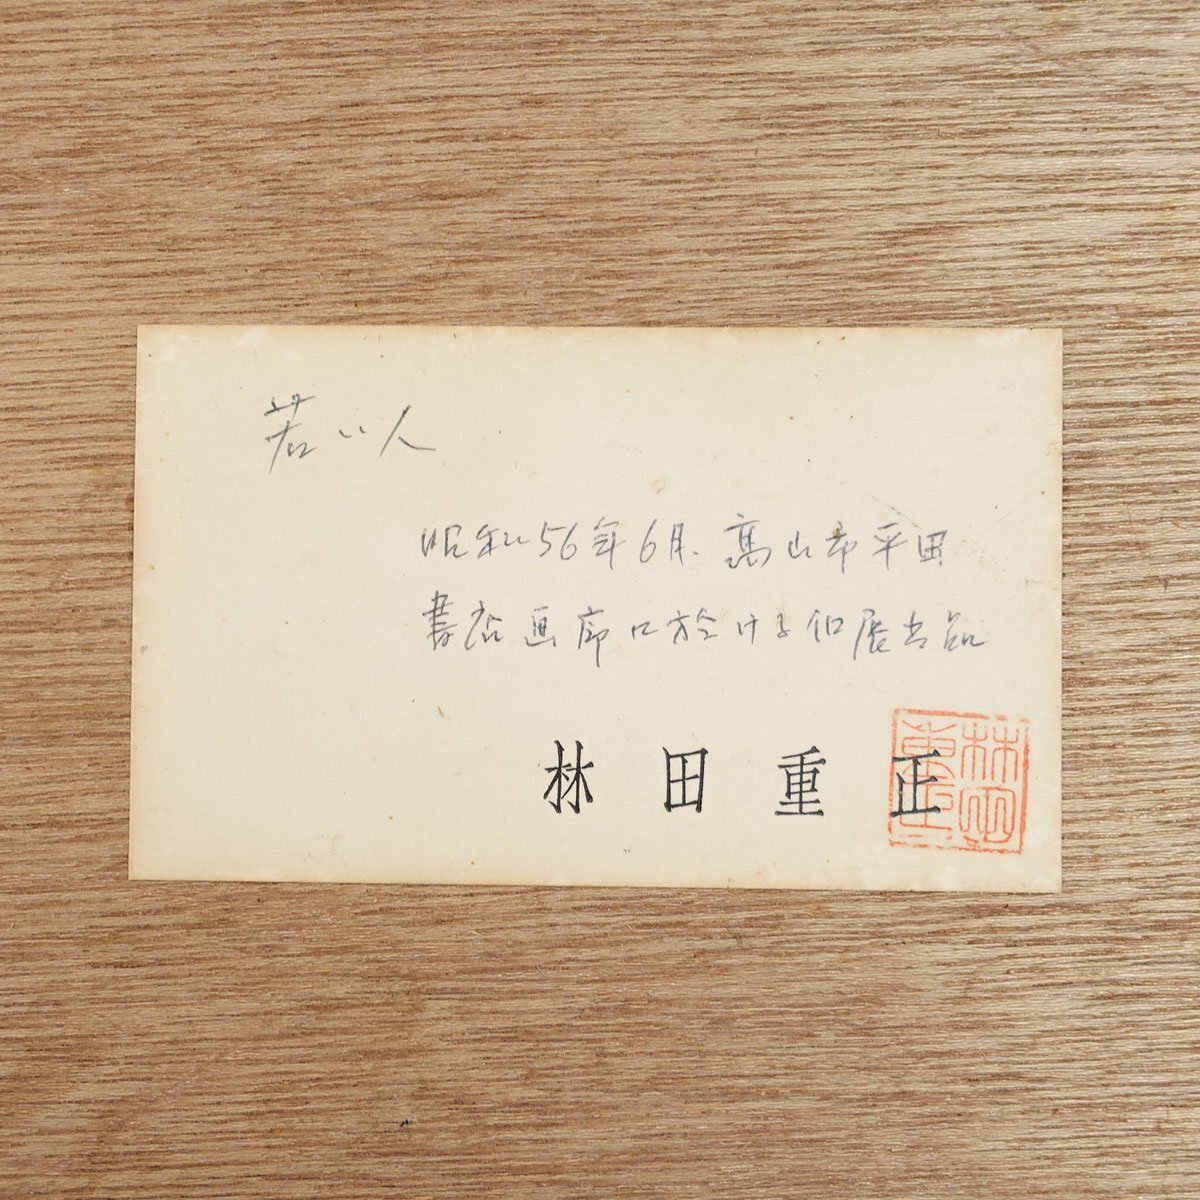 若い人
昭和56年6月、高山市平田
書店画廊に於ける個展出品
林田重正
林田
重正